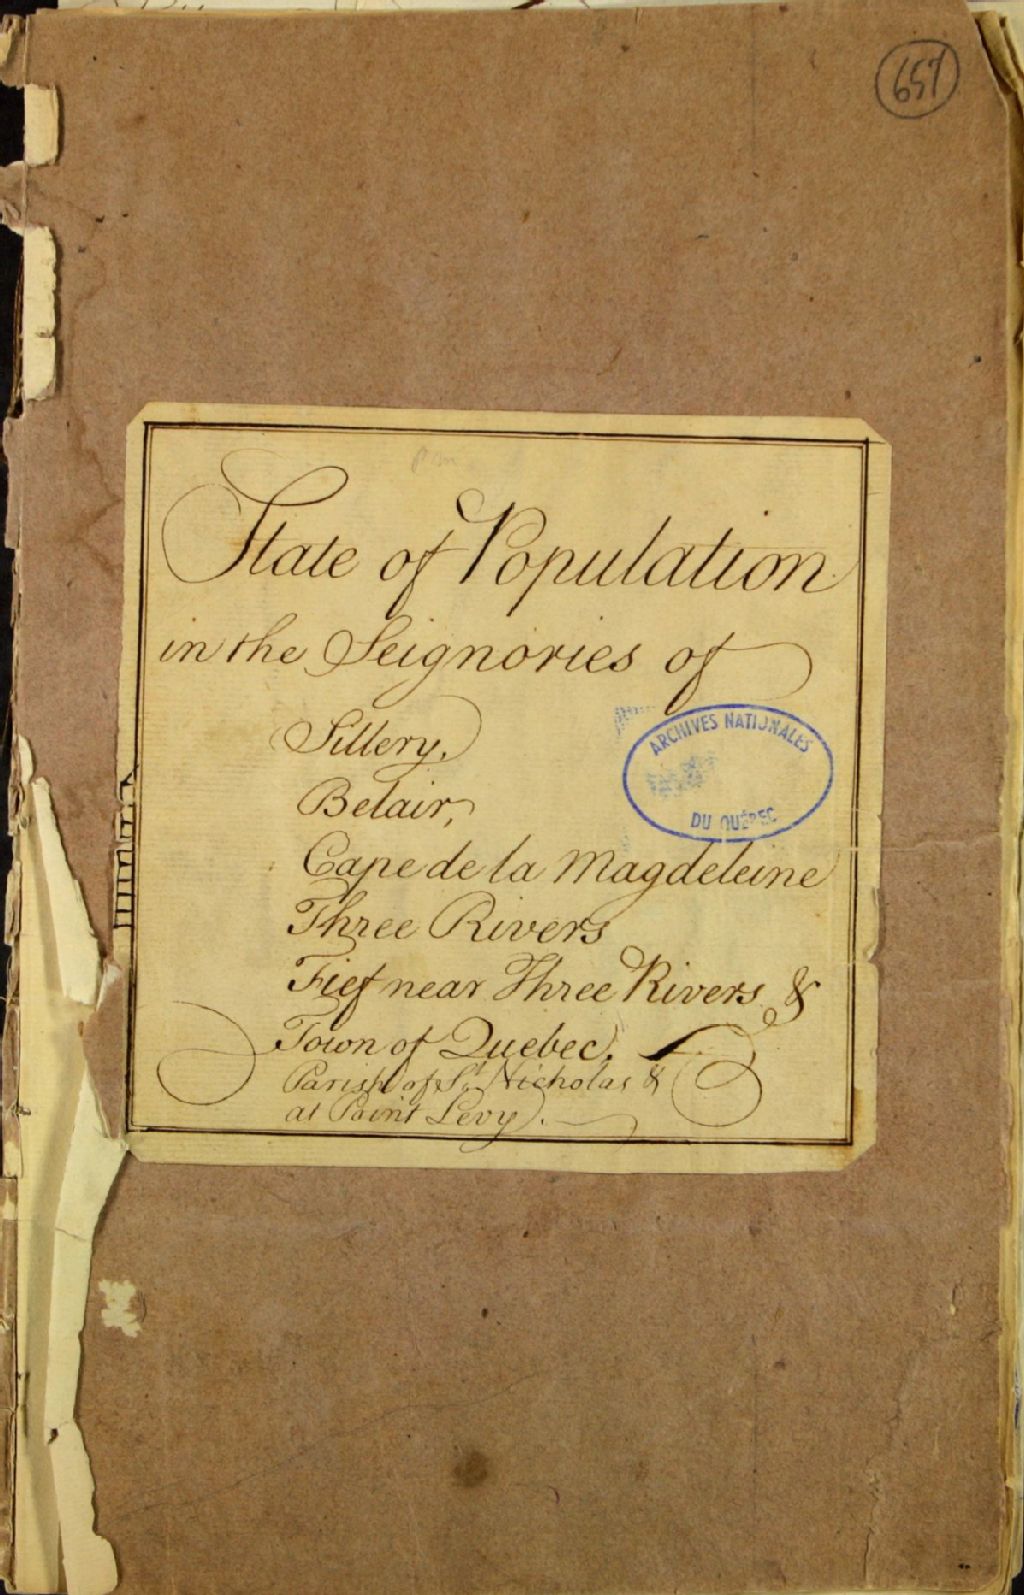 657
State of Population
in the Seignories of
Sillery,
Belair,
Cape de la Magdeleine
Three Rivers
Fief near Three Rivers &
Town of Quebec.
Parish of St. Nicholas &
at Point Levy.
ARCHIVES NATIONALES
DU QUÉBEC